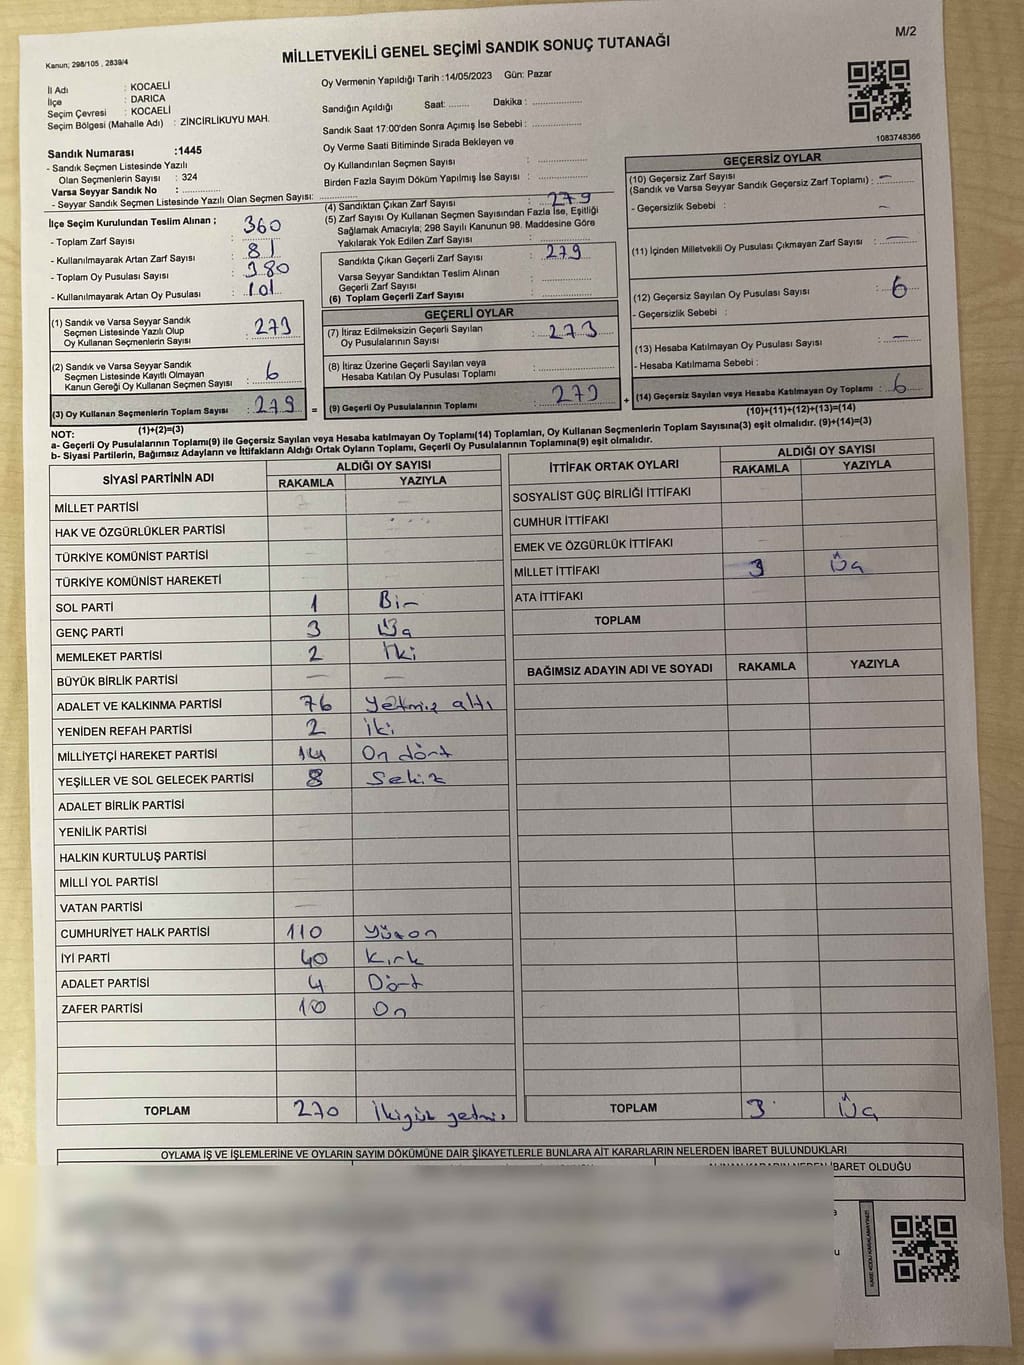 M/2
Kanun; 298/105 , 2839/4
MİLLETVEKİLİ GENEL SEÇİMİ SANDIK SONUÇ TUTANAĞI
İl Adı : KOCAELİ
İlçe : DARICA
Seçim Çevresi : KOCAELİ
Seçim Bölgesi (Mahalle Adı) : ZİNCİRLİKUYU MAH.
Sandık Numarası :1445
- Sandık Seçmen Listesinde Yazılı
Olan Seçmenlerin Sayısı : 324
Varsa Seyyar Sandık No : ..............
- Seyyar Sandık Seçmen Listesinde Yazılı Olan Seçmen Sayısı: ..............
Oy Vermenin Yapıldığı Tarih :14/05/2023 Gün: Pazar
Sandığın Açıldığı Saat: ........ Dakika : ..................
Sandık Saat 17:00'den Sonra Açımış İse Sebebi : ..................
Oy Verme Saati Bitiminde Sırada Bekleyen ve
Oy Kullandırılan Seçmen Sayısı : ..................
Birden Fazla Sayım Döküm Yapılmış İse Sayısı : ..................
1083748366
İlçe Seçim Kurulundan Teslim Alınan ;
- Toplam Zarf Sayısı : 360
- Kullanılmayarak Artan Zarf Sayısı : 81
- Toplam Oy Pusulası Sayısı : 380
- Kullanılmayarak Artan Oy Pusulası : 101
(1) Sandık ve Varsa Seyyar Sandık
Seçmen Listesinde Yazılı Olup
Oy Kullanan Seçmenlerin Sayısı : 273
(2) Sandık ve Varsa Seyyar Sandık
Seçmen Listesinde Kayıtlı Olmayan
Kanun Gereği Oy Kullanan Seçmen Sayısı : 6
(3) Oy Kullanan Seçmenlerin Toplam Sayısı : 279
(1)+(2)=(3)
(4) Sandıktan Çıkan Zarf Sayısı : 279
(5) Zarf Sayısı Oy Kullanan Seçmen Sayısından Fazla İse, Eşitliği
Sağlamak Amacıyla; 298 Sayılı Kanunun 98. Maddesine Göre
Yakılarak Yok Edilen Zarf Sayısı : ..................
Sandıkta Çıkan Geçerli Zarf Sayısı : 279
Varsa Seyyar Sandıktan Teslim Alınan
Geçerli Zarf Sayısı : ..................
(6) Toplam Geçerli Zarf Sayısı : ..................
GEÇERLİ OYLAR
(7) İtiraz Edilmeksizin Geçerli Sayılan
Oy Pusulalarının Sayısı : 273
(8) İtiraz Üzerine Geçerli Sayılan veya
Hesaba Katılan Oy Pusulası Toplamı : ..................
= (9) Geçerli Oy Pusulalarının Toplamı : 273
GEÇERSİZ OYLAR
(10) Geçersiz Zarf Sayısı
(Sandık ve Varsa Seyyar Sandık Geçersiz Zarf Toplamı) : —
- Geçersizlik Sebebi : —
(11) İçinden Milletvekili Oy Pusulası Çıkmayan Zarf Sayısı : —
(12) Geçersiz Sayılan Oy Pusulası Sayısı : 6
- Geçersizlik Sebebi :
(13) Hesaba Katılmayan Oy Pusulası Sayısı : —
- Hesaba Katılmama Sebebi :
+ (14) Geçersiz Sayılan veya Hesaba Katılmayan Oy Toplamı : 6
(10)+(11)+(12)+(13)=(14)
NOT:
a- Geçerli Oy Pusulalarının Toplamı(9) ile Geçersiz Sayılan veya Hesaba katılmayan Oy Toplamı(14) Toplamları, Oy Kullanan Seçmenlerin Toplam Sayısına(3) eşit olmalıdır. (9)+(14)=(3)
b- Siyasi Partilerin, Bağımsız Adayların ve İttifakların Aldığı Ortak Oyların Toplamı, Geçerli Oy Pusulalarının Toplamına(9) eşit olmalıdır.
SİYASİ PARTİNİN ADI ALDIĞI OY SAYISI
RAKAMLA YAZIYLA
MİLLET PARTİSİ —
HAK VE ÖZGÜRLÜKLER PARTİSİ
TÜRKİYE KOMÜNİST PARTİSİ
TÜRKİYE KOMÜNİST HAREKETİ
SOL PARTİ 1 Bir
GENÇ PARTİ 3 Üç
MEMLEKET PARTİSİ 2 İki
BÜYÜK BİRLİK PARTİSİ — —
ADALET VE KALKINMA PARTİSİ 76 Yetmiş altı
YENİDEN REFAH PARTİSİ 2 İki
MİLLİYETÇİ HAREKET PARTİSİ 14 On dört
YEŞİLLER VE SOL GELECEK PARTİSİ 8 Sekiz
ADALET BİRLİK PARTİSİ
YENİLİK PARTİSİ
HALKIN KURTULUŞ PARTİSİ
MİLLİ YOL PARTİSİ
VATAN PARTİSİ —
CUMHURİYET HALK PARTİSİ 110 Yüzon
İYİ PARTİ 40 Kırk
ADALET PARTİSİ 4 Dört
ZAFER PARTİSİ 10 On
TOPLAM 270 İkiyüz yetmiş
İTTİFAK ORTAK OYLARI ALDIĞI OY SAYISI
RAKAMLA YAZIYLA
SOSYALİST GÜÇ BİRLİĞİ İTTİFAKI
CUMHUR İTTİFAKI
EMEK VE ÖZGÜRLÜK İTTİFAKI
MİLLET İTTİFAKI 3 Üç
ATA İTTİFAKI
TOPLAM
BAĞIMSIZ ADAYIN ADI VE SOYADI RAKAMLA YAZIYLA
TOPLAM 3 Üç
OYLAMA İŞ VE İŞLEMLERİNE VE OYLARIN SAYIM DÖKÜMÜNE DAİR ŞİKAYETLERLE BUNLARA AİT KARARLARIN NELERDEN İBARET BULUNDUKLARI
İBARET OLDUĞU